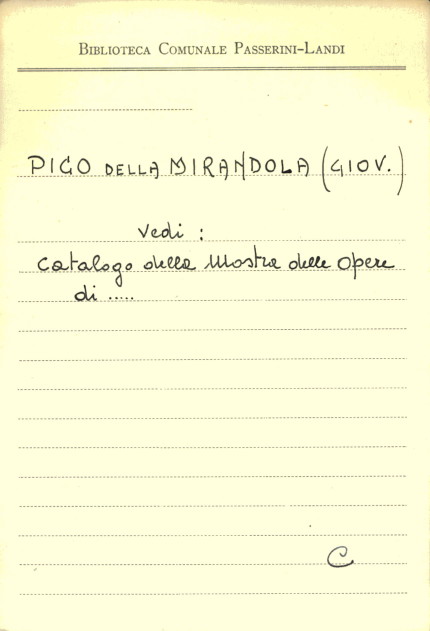 BIBLIOTECA COMUNALE PASSERINI-LANDI
PICO DELLA MIRANDOLA (GIOV.)
Vedi :
Catalogo della Mostra delle Opere
di .....
C